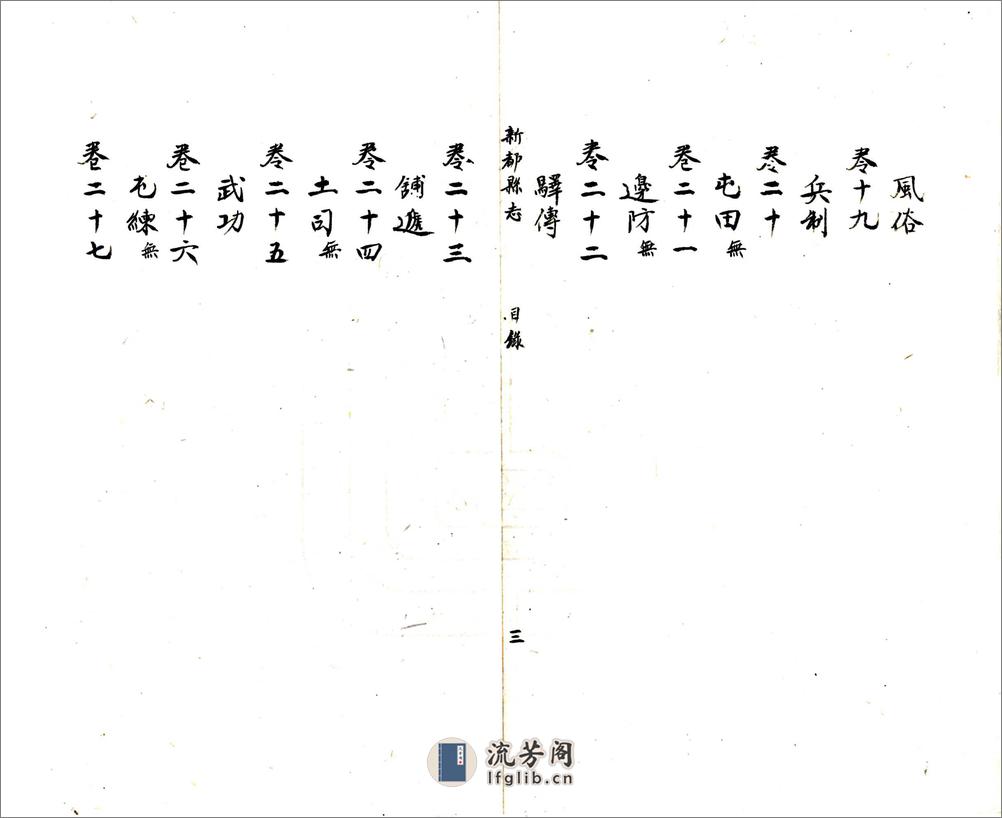 風俗
卷十九
兵制
卷二十
屯田無
卷二十一
邊防無
卷二十二
驛傳
新都縣志 目錄 三
卷二十三
鋪遞
卷二十四
土司無
卷二十五
武功
卷二十六
屯練無
卷二十七
流芳阁
lfglib.cn